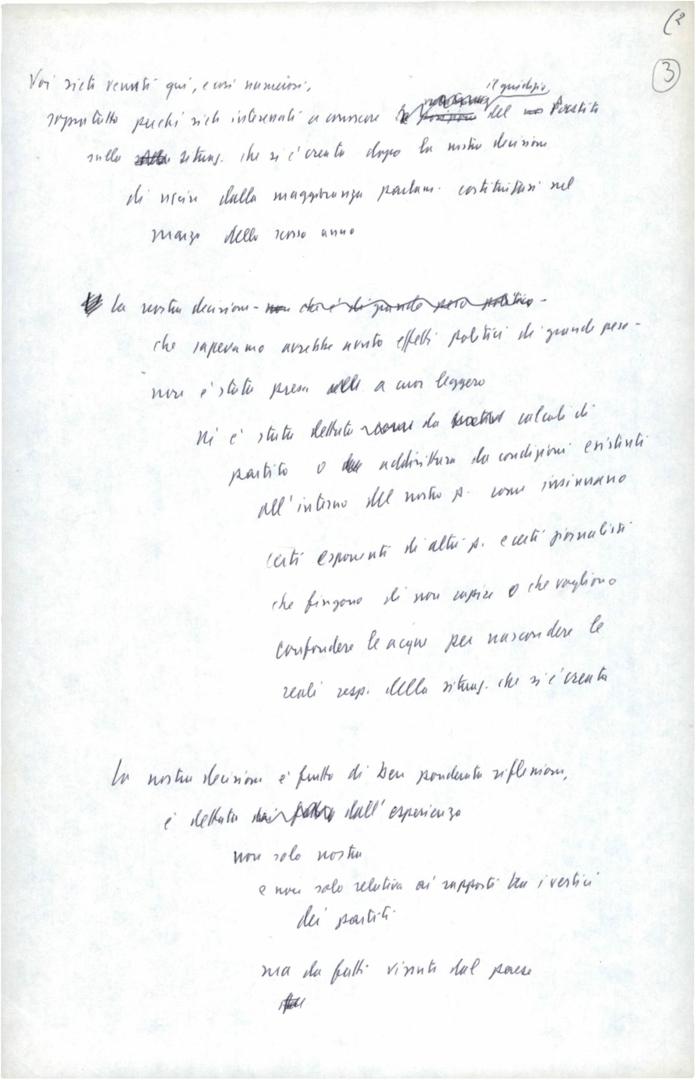 (2
3
Voi siete venuti qui, e così numerosi,
il giudizio
soprattutto perché siete interessati a conoscere del Partito
sulla situaz. che si è creata dopo la nostra decisione
di uscire dalla maggioranza parlam. costituitasi nel
marzo dello scorso anno
La nostra decisione - non che è di grande peso politico -
che sapevamo avrebbe avuto effetti politici di grande peso -
non è stata presa a cuor leggero
Né è stata dettata da calcoli di
partito o addirittura da condizioni esistenti
all'interno del nostro p. come insinuano
certi esponenti di altri p. e certi giornalisti
che fingono di non capire o che vogliono
confondere le acque per nascondere le
reali resp. della situaz. che si è creata
La nostra decisione è frutto di ben ponderata riflessione,
è dettata dall'esperienza
non solo nostra
e non solo relativa ai rapporti tra i vertici
dei partiti
ma da fatti vissuti dal paese